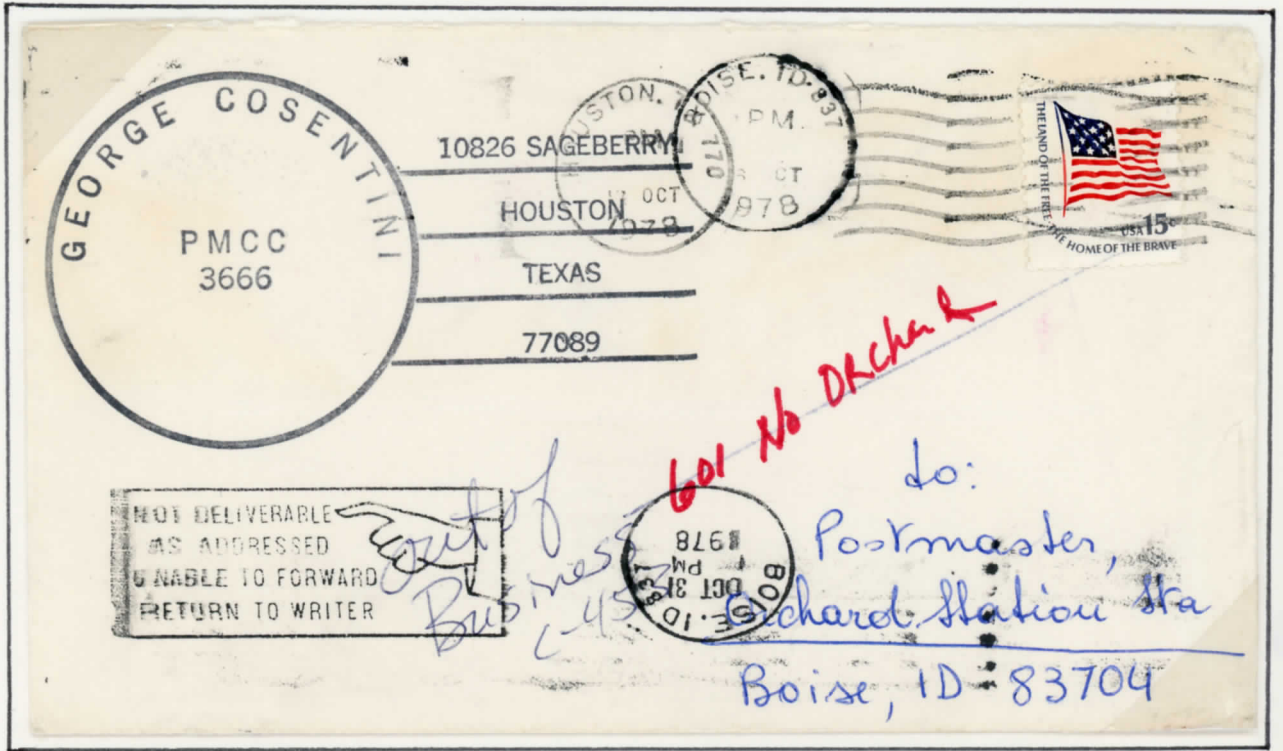 GEORGE COSENTINI
PMCC
3666
10826 SAGEBERRY
HOUSTON
TEXAS
77089
HOUSTON, 770
PM
OCT
1978
BOISE. ID. 837
PM.
OCT
1978
THE LAND OF THE FREE THE HOME OF THE BRAVE
USA 15c
601 No ORchard
NOT DELIVERABLE
AS ADDRESSED
UNABLE TO FORWARD
RETURN TO WRITER
out of
Business
BOISE. ID 837
OCT 31
PM
1978
to:
Postmaster,
Orchard Station Sta
Boise, ID 83704